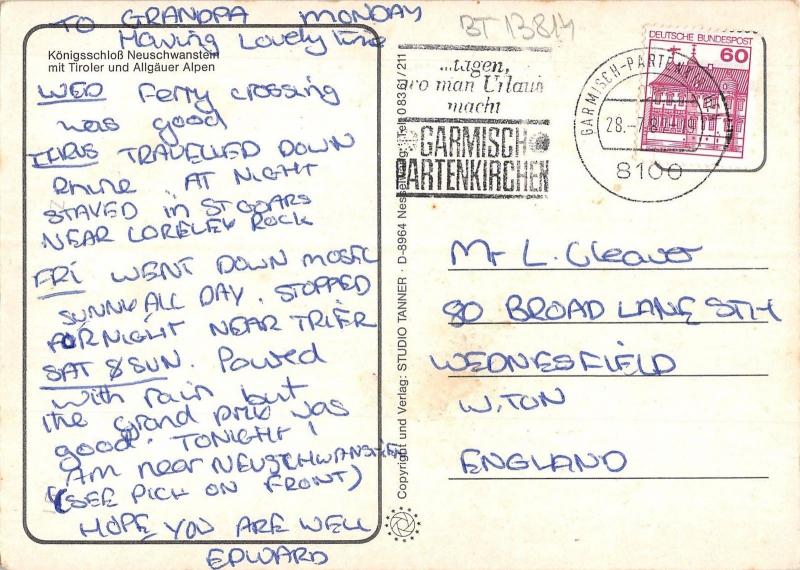 TO GRANDPA MONDAY
Having Lovely time
Königsschloß Neuschwanstein
mit Tiroler und Allgäuer Alpen
WED Ferry crossing
was good
THRUS TRAVELLED DOWN
Rhine. AT NIGHT
STAYED in ST GOARS
NEAR LORELEY ROCK
FRI WENT DOWN MOSEL
SUNNY ALL DAY. STOPPED
FOR NIGHT NEAR TRIER
SAT & SUN. Poured
with rain but
the grand prix was
good. TONIGHT I
AM near NEUSCHWANSTIEN
(SEE PICH ON FRONT)
HOPE YOU ARE WELL
EDWARD
Copyright und Verlag: STUDIO TANNER · D-8964 Nesselwang · Tel. 0 83 61 / 211
BT 13814
...tagen,
wo man Urlaub
macht
GARMISCH
PARTENKIRCHEN
GARMISCH-PARTENKIRCHEN
28.-7.8
8100
DEUTSCHE BUNDESPOST
60
Mr L. Cleaver
80 BROAD LANE STH
WEDNESFIELD
W.TON
ENGLAND